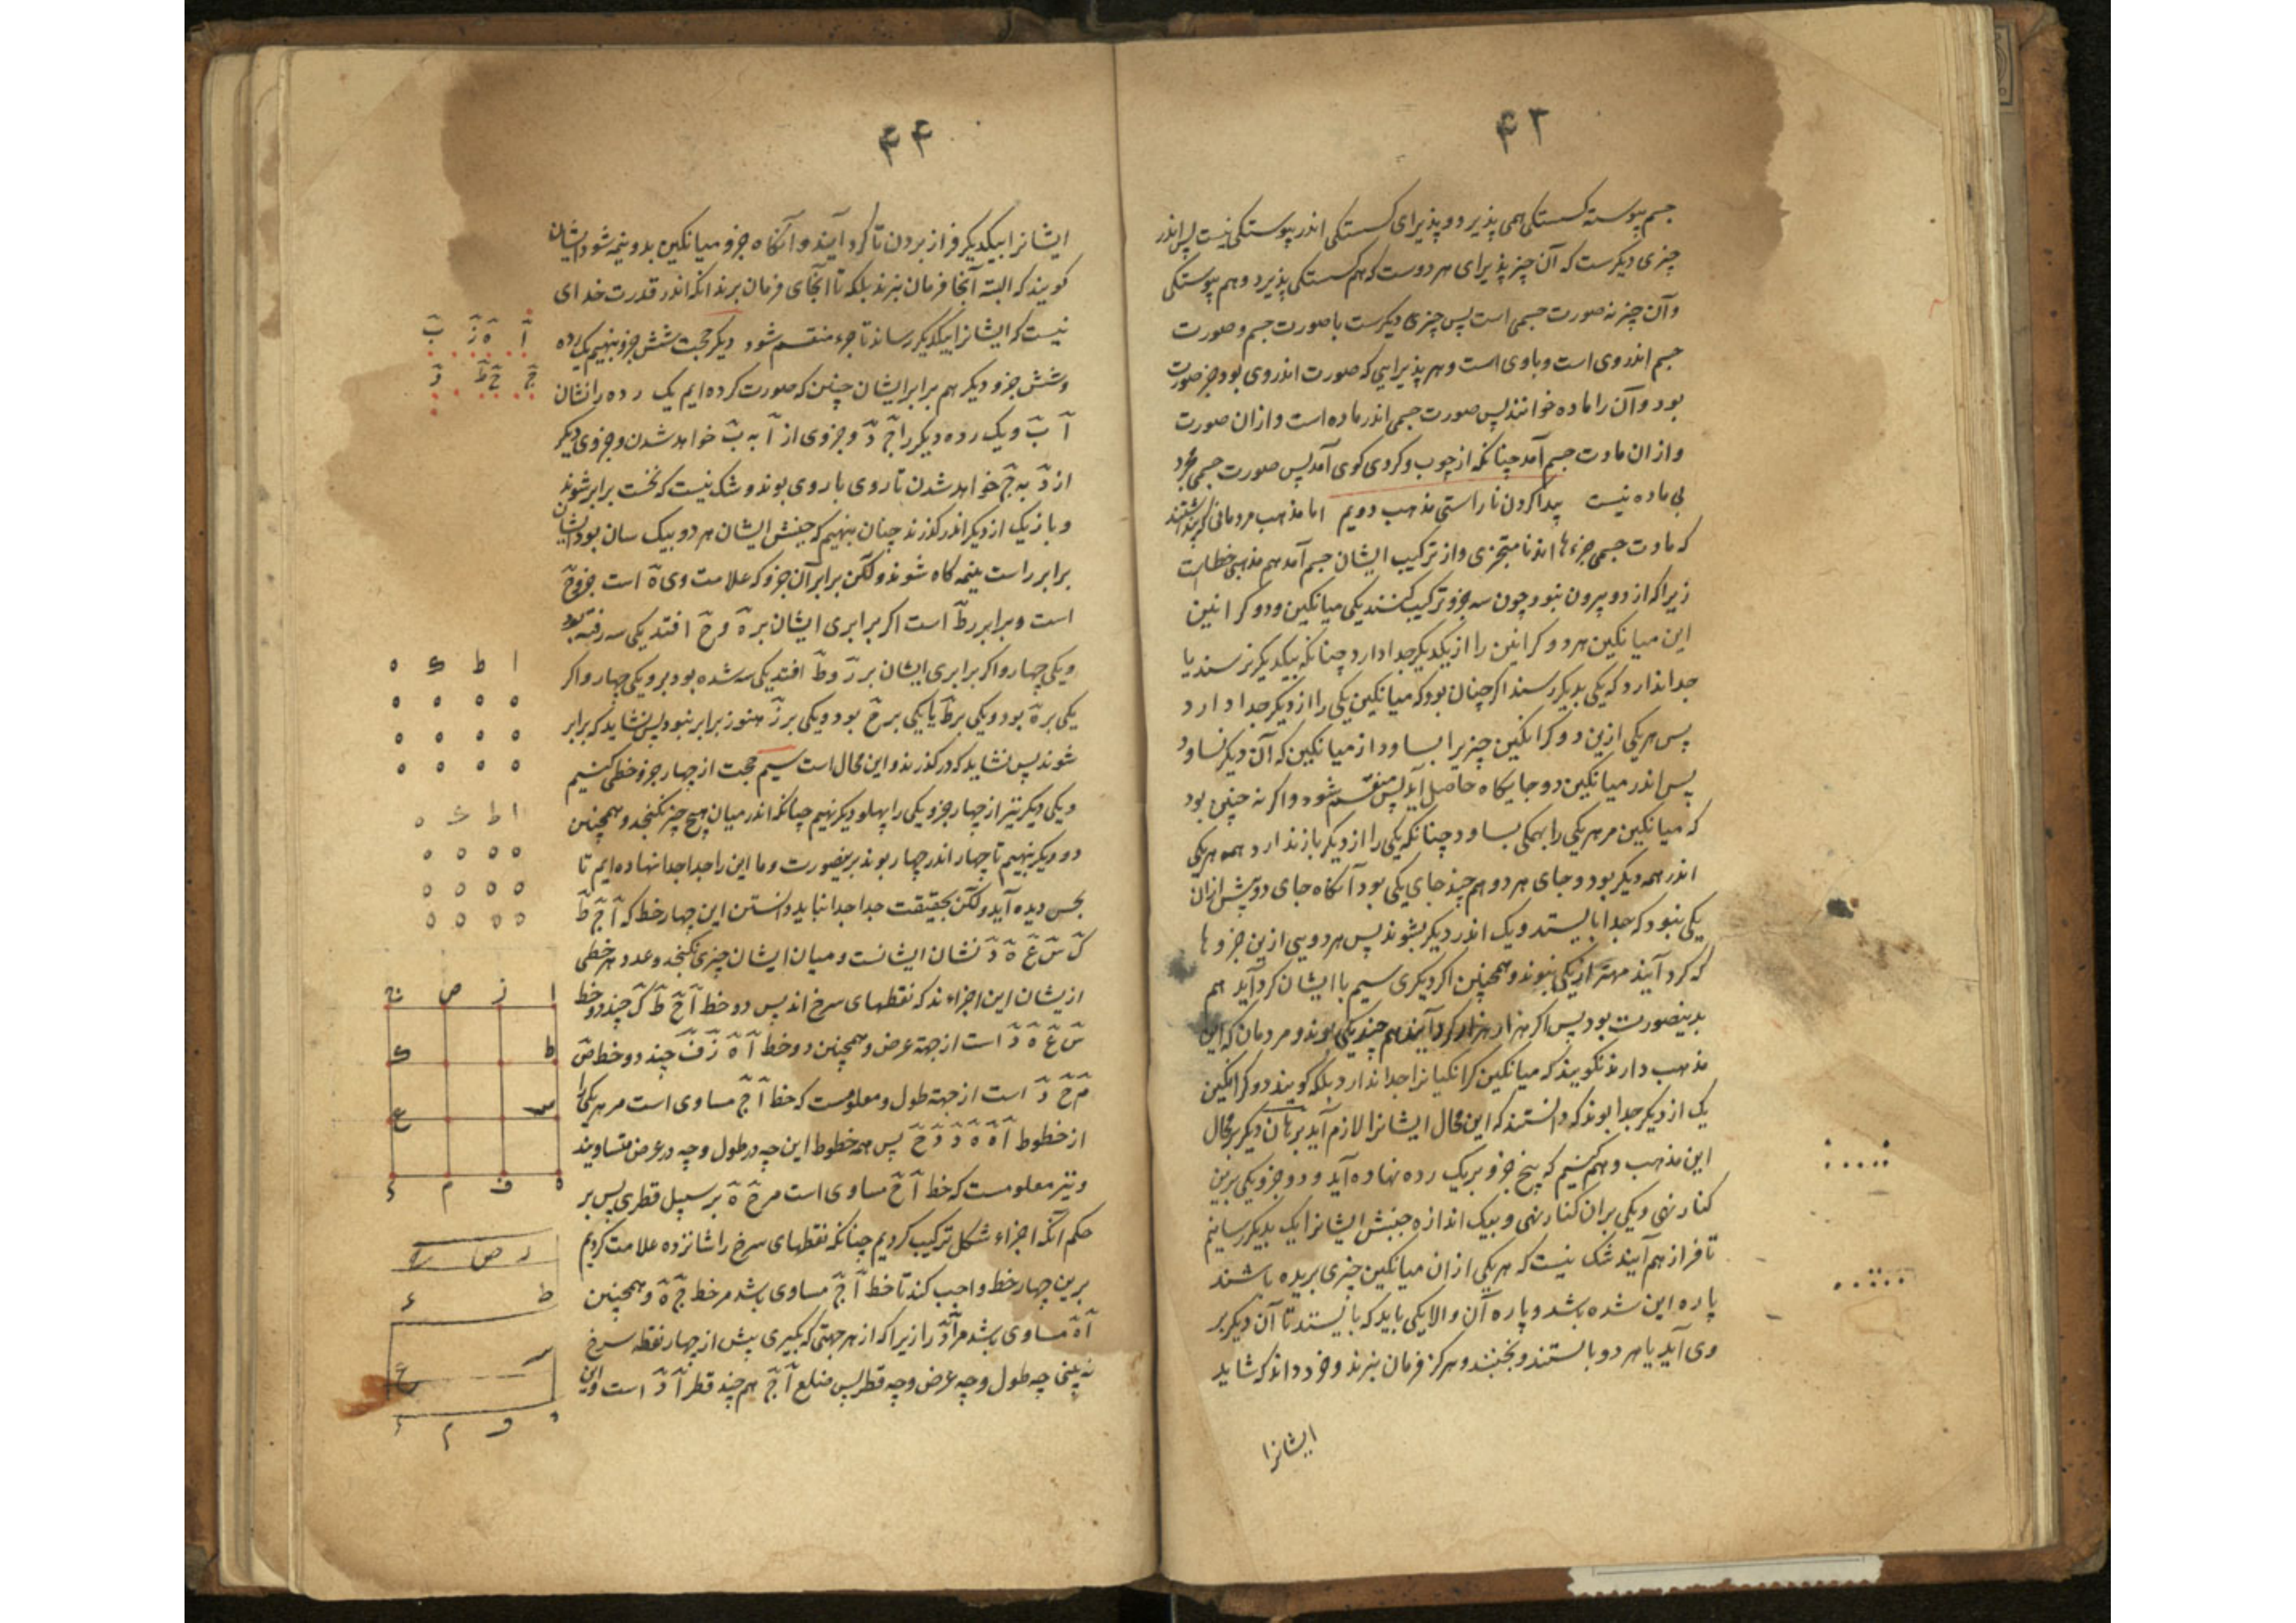 ۴۳
جسم پیوسته کسستکی همی پذیرد و پذیرای کسستکی اندر پیوستکی نیست پس اندر
چیزی دیکرست که آن چیز پذیرای هر دوست که هم کسستکی پذیرد و هم پیوستکی
و آن چیز نه صورت جسمی است پس چیزی دیکرست با صورت جسم و صورت
جسم اندر وی است و با وی است و هر پذیرایی که صورت اندر وی بود جز صورت
بود و آن را ماده خوانند پس صورت جسمی اندر ماده است و از ان صورت
و از ان مادت جسم آمد چنانکه از چوب و کردی کوی آمد پس صورت جسمی مجرد
بی ماده نیست پیدا کردن ناراستی مذهب دویم اما مذهب مردمانی که پنداشتند
که مادت جسمی جزءها اند نامتجزی و از ترکیب ایشان جسم آمد هم مذهبی خطاست
زیرا که از دو بیرون نبود چون سه جزو ترکیب کنند یکی میانکین و دو کرانین
این میانکین هر دو کرانین را از یکدیکر جدا دارد چنانکه بیکدیکر نرسند یا
جدا ندارد که یکی بدیکر رسند اکر چنان بود که میانکین یکی را از دیکر جدا دارد
پس هر یکی ازین دو کرانکین چیزیرا بساود از میانکین که آن دیکر نساود
پس اندر میانکین دو جایکاه حاصل آید پس منقسم شود و اکر نه چنین بود
که میانکین مر هر یکی را بهمکی بساود چنانکه یکی را از دیکر باز ندارد همه هر یکی
اندر همه دیکر بود و جای هر دو هم چند جای یکی بود آنکاه جای دو بیش از ان
یکی نبود که جدا بایستد و یک اندر دیکر بشوند پس هر دویی ازین جزوها
که کرد آیند مهتر از یکی نبوند و همچنین اکر دیکری سیم با ایشان کرد آید هم
بدینصورت بود پس اکر هزار هزار کرد آیند هم چند یکی بوند و مردمان که این
مذهب دارند نکویند که میانکین کرانکیانرا جدا ندارد بلکه کویند دو کرانکین
یک از دیکر جدا بوند که دانستند که این محال ایشانرا لازم آید برهان دیکر بر محال
این مذهب وهم کنیم که پنج جزو بر یک رده نهاده آید و دو جزو یکی برین
کناره نهی و یکی بران کناره نهی و بیک اندازه جنبش ایشانرا یک بدیکر رسانیم
تا فراز هم آیند شک نیست که هر یکی از ان میانکین چیزی بریده باشند
پاره این شده باشد و پاره آن والا یکی باید که بایستد تا آن دیکر بر
وی آید یا هر دو بایستند و نجنبند و هرکز فرمان نبرند و خرد داند که شاید
ایشانرا
۴۴
ایشانرا بیکدیکر فراز بردن تا کرد آیند و آنکاه جزو میانکین بدو نیمه شود و ایشان
کویند که البته آنجا فرمان نبرند بلکه تا آنجای فرمان برند انکه اندر قدرت خدای
نیست که ایشانرا بیکدیکر رساند تا جزء منقسم شود دیکر حجت شش جزو بنهیم یک رده
و شش جزو دیکر هم برابر ایشان چنین که صورت کرده ایم یک رده را نشان
آ ب و یک رده دیکر را ج د و جزوی از آ به ب خواهد شدن و جزوی دیکر
از د به ج خواهد شدن تا روی با روی بوند و شک نیست که نخست برابر شوند
و باز یک از دیکر اندر کذرند چنان بنهیم که جنبش ایشان هر دو بیک سان بود و ایشان
برابر راست بنیمه کاه شوند ولکن برابر آن جزو که علامت وی ه است جزو ح
است و برابر ر ط است اکر برابری ایشان بر ه و ح افتد یکی سه رفته بود
و یکی چهار و اکر برابری ایشان بر ز و ط افتد یکی سه شده بود و یکی چهار و اکر
یکی بر ه بود و یکی بر ط یا یکی بر ح بود و یکی بر ز هنوز برابر نبود پس نشاید که برابر
شوند پس نشاید که در کذرند و این محال است سیم حجت از چهار جزو خطی کنیم
و یکی دیکر نیز از چهار جزو یکی را پهلو دیکر نهیم چنانکه اندر میان هیچ چیز نکنجد و همچنین
دو دیکر بنهیم تا چهار اندر چهار بوند برینصورت و ما این را جدا جدا نهاده ایم تا
بحس دیده آید ولکن بحقیقت جدا جدا نباید دانستن این چهار خط که آ ج ط
ک س ع ه د نشان ایشانست و میان ایشان چیزی نکنجد و عدد هر خطی
از یشان این اجزاءند که نقطهای سرخ اند پس دو خط آ ج ط ک چند دو خط
س ع ه د است از جهة عرض و همچنین دو خط آ ه ز ف چند دو خط ص
م ح د است از جهة طول و معلومست که خط آ ج مساوی است مر هر یکی را
از خطوط پس همه خطوط این چه در طول و چه در عرض متساویند
و نیز معلومست که خط آ ح مساوی است مر ح ه بر سبیل قطری پس بر
حکم آنکه اجزاء شکل ترکیب کردیم چنانکه نقطهای سرخ را شانزده علامت کردیم
برین چهار خط واجب کند تا خط آ ج مساوی باشد مر خط ج ه و همچنین
آ ه مساوی باشد مر آ د را زیرا که از هر جهتی که بکیری بیش از چهار نقطه سرخ
نه بینی چه طول و چه عرض و چه قطر پس ضلع آ ج هم چند قطر آ د است و این
آ ه ز ب
ج ح ط د
ا ط ک ه
ا ط س ه
ا ز ص ج
ط ک
س ع
ه ف م د
ر ص
ط ع
س ع
ه ف م د